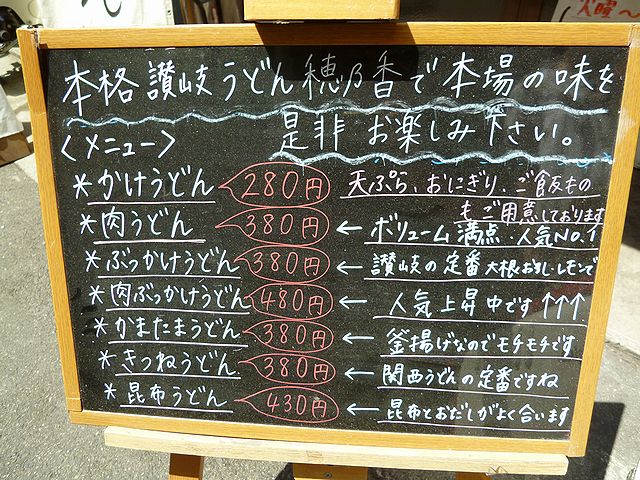 本格讃岐うどん穂乃香で本場の味を
是非お楽しみ下さい。
〈メニュー〉
*かけうどん 280円 天ぷら、おにぎり、ご飯もの
もご用意しております
*肉うどん 380円 ← ボリューム満点・人気No.1
*ぶっかけうどん 380円 ← 讃岐の定番大根おろし・レモンで
*肉ぶっかけうどん 480円 ← 人気上昇中です↑↑↑
*かまたまうどん 380円 ← 釜揚げなのでモチモチです
*きつねうどん 380円 ← 関西うどんの定番ですね
*昆布うどん 430円 ← 昆布とおだしがよく合います